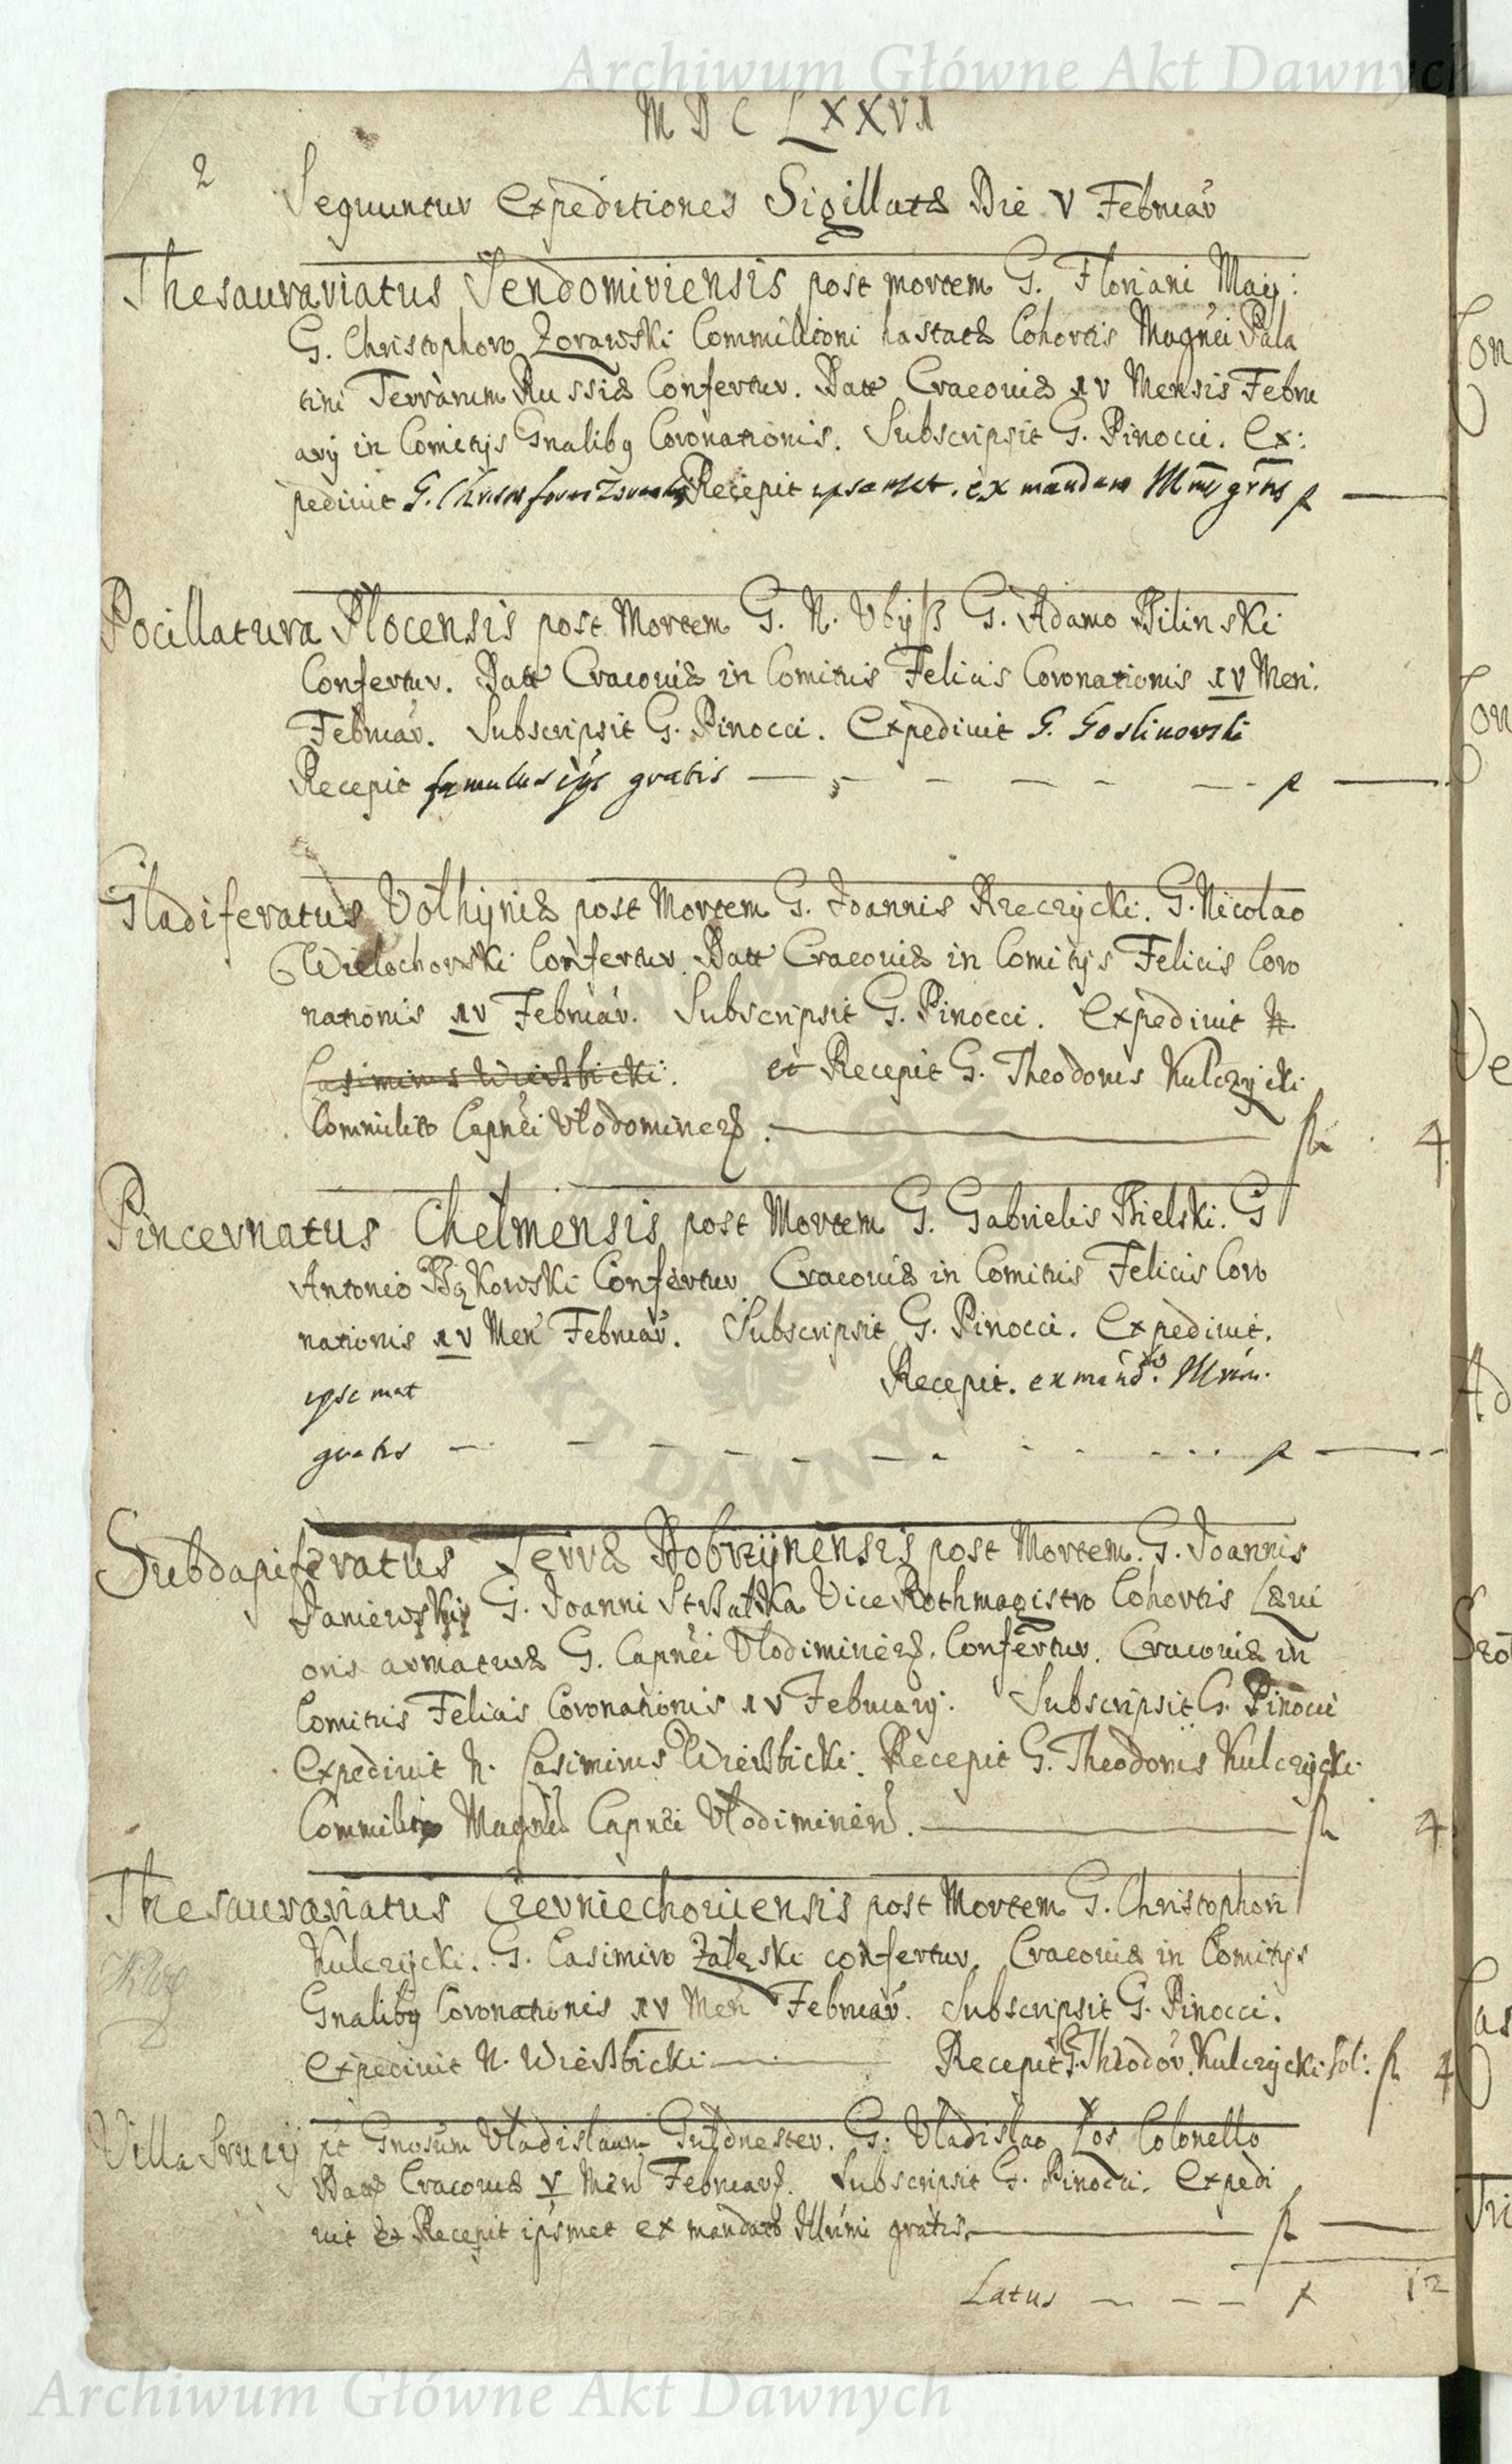 Archiwum Główne Akt Dawnych
MDCLXXVI
2
Sequuntur Expeditiones Sigillatæ Die V Februar
Thesaurariatus Sendomiriensis post mortem G. Floriani May:
G. Christophoro Zorawski Commilitoni hastatæ Cohortis Magnci Pala
tini Terrarum Russiæ Confertur. Datt Cracoviæ IV Mensis Febru
arij in Comitijs Gnalibg Coronationis. Subscripsit G. Pinocci. Ex:
pedivit G. Recepit ipsemet. ex mandato grtis
Pocillatura Plocensis post Mortem G. N. G. Adamo Pilinski
Confertur. Datt Cracoviæ in Comitiis Felicis Coronationis IV Men.
Februar. Subscripsit G. Pinocci. Expedivit G. Goslinowski
Recepit famulus gratis
Gladiferatus Volhijniæ post Mortem G. Joannis Rzeczycki. G. Nicolao
Wielochorski Confertur. Datt Cracoviæ in Comitijs Felicis Coro
nationis IV Februar. Subscripsit G. Pinocci. Expedivit
Casimirus Wierßbicki. et Recepit G. Theodorus Kulczycki
Commilito Capnei
4
Pincernatus Chelmensis post Mortem G. Gabrielis Bielski. G
Antonio Bąkowski Confertur. Cracoviæ in Comitiis Felicis Coro
nationis IV Men Februar. Subscripsit G. Pinocci. Expedivit.
ipsemet Recepit. ex mando.
gratis
Subdapiferatus Terræ Dobrzÿnensis post Mortem. G. Joannis
Janiewski G. Joanni Vice Rothmagistro Cohortis Lævi
oris armaturæ G. Capnei Confertur. Cracoviæ in
Comitiis Felicis Coronationis IV Februarij. Subscripsit G. Pinocci
Expedivit N. Casimirus Wierßbicki. Recepit G. Theodorus Kulczycki
Commilito Magnci Capnei
4
Thesaurariatus Czerniechoviensis post Mortem G. Christophori
Kulczycki. G. Casimiro Załęski confertur. Cracoviæ in Comitijs
Gnalibg Coronationis IV Men Februar. Subscripsit G. Pinocci.
Expedivit N. Wierßbicki Recepit G. Theodor. Kulczycki sol: 4
Villa pt Gnosum Vladislaum G. Vladislao Łoś Colonello
Datt Cracoviæ V Men Februar. Subscripsit G. Pinocci. Expedi
vit & Recepit ipsmet ex mandato Illrimi gratis
Latus 12
Archiwum Główne Akt Dawnych